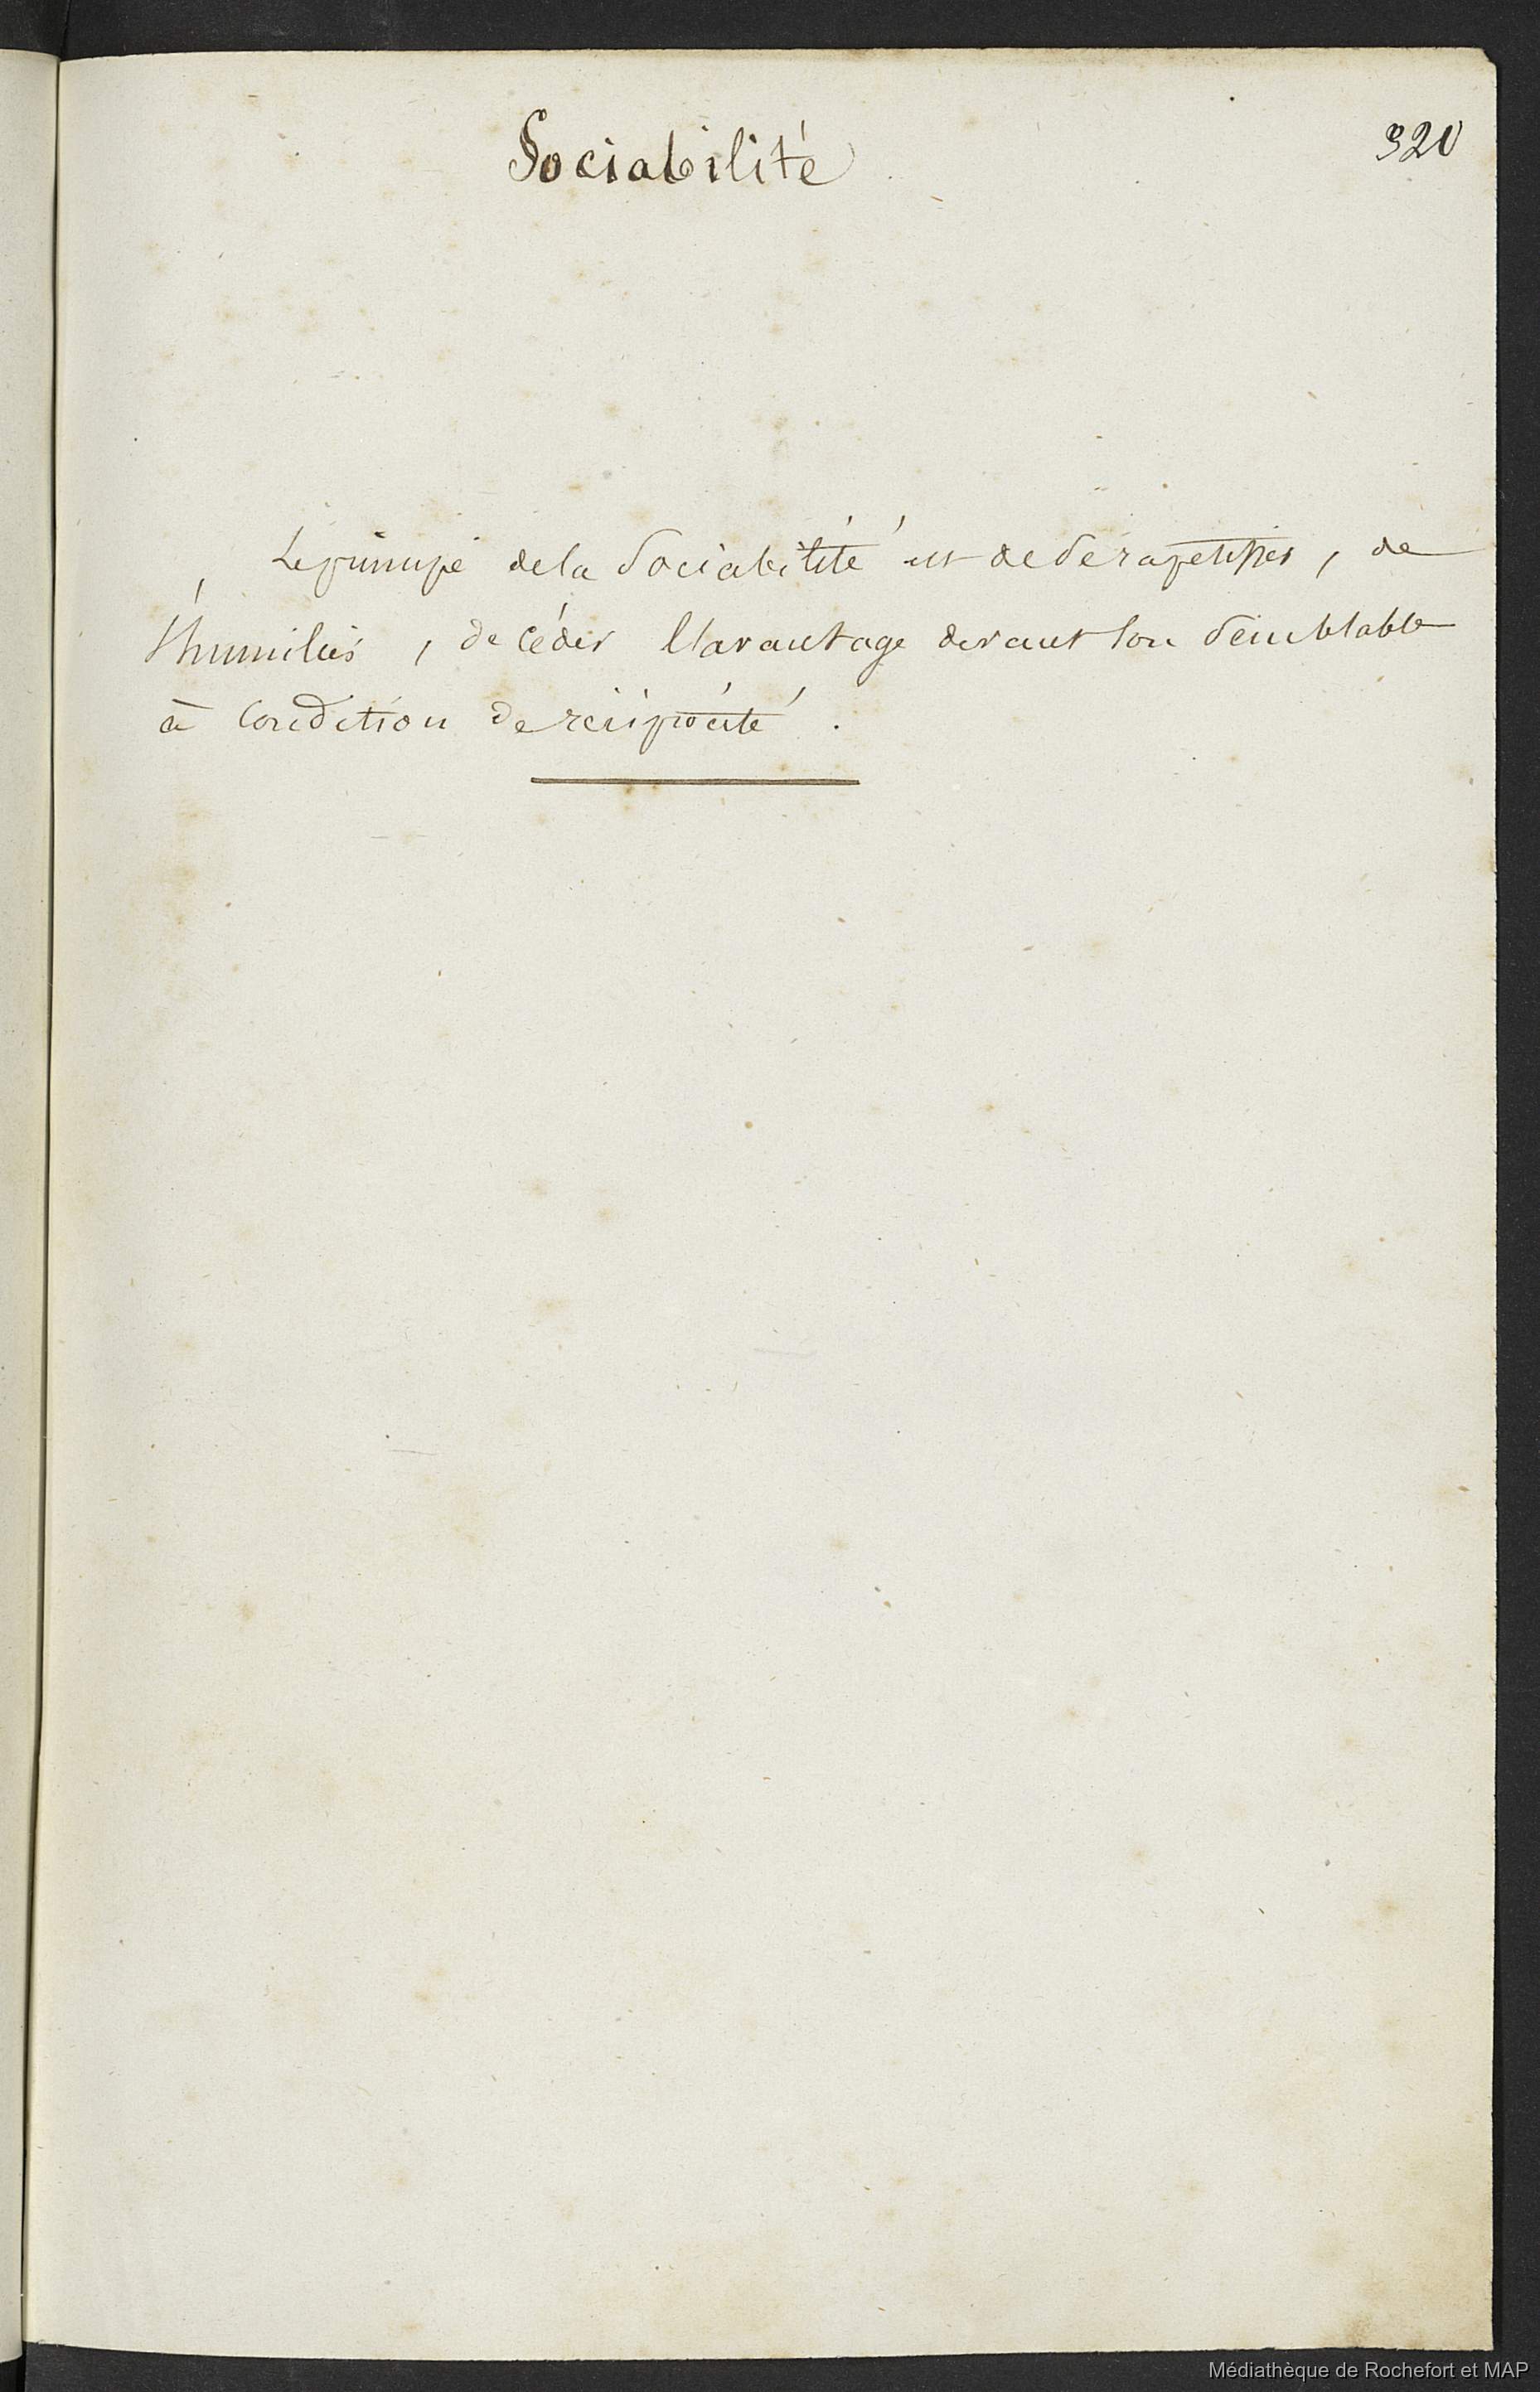 Sociabilité
320
Le principe de la Sociabilité est de se rapetisser, de
s'humilier, de céder l'avantage devant son semblable
à condition de réciprocité.
Médiathèque de Rochefort et MAP